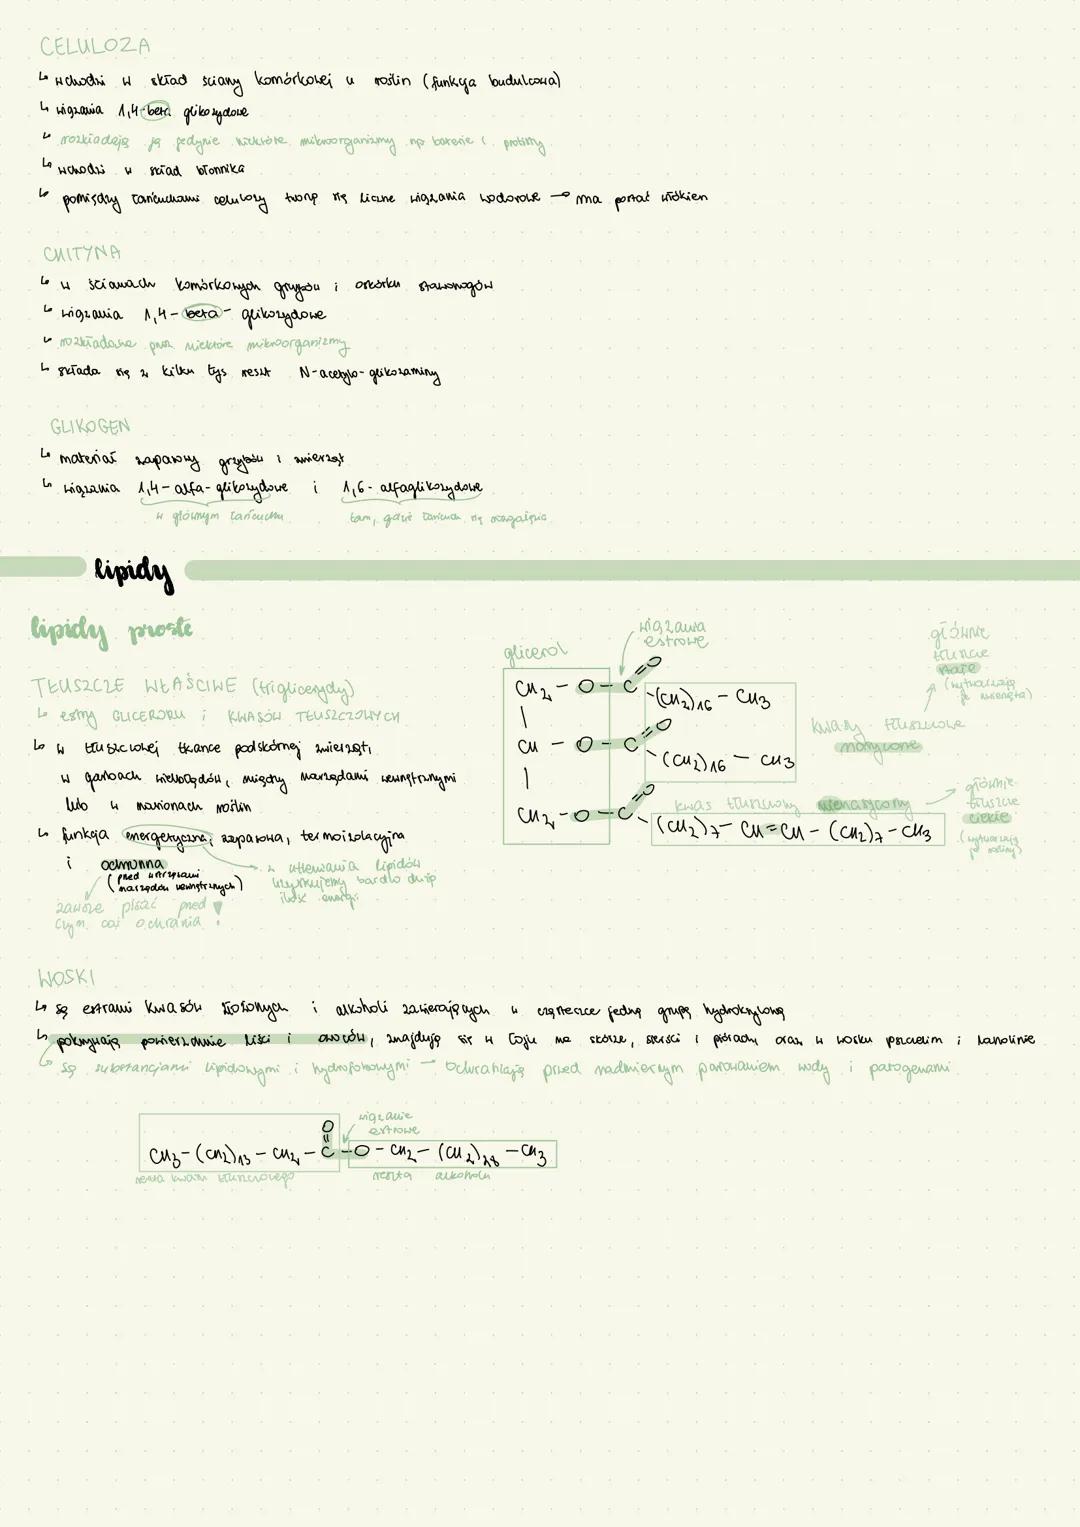 CELULOZA
↳ wchodzi w skład ściany komórkowej u roślin (funkcja budulcowa)
↳ wiązania 1,4-beta glikozydowe
↳ rozkładają ją jedynie niektóre mikroorganizmy np bakterie i protisty
↳ wchodzi w skład błonnika
↳ pomiędzy łańcuchami celulozy tworzą się liczne wiązania wodorowe → ma postać włókien
CHITYNA
↳ w ścianach komórkowych grzybów i oskórku stawonogów
↳ wiązania 1,4-beta-glikozydowe
↳ rozkładana przez niektóre mikroorganizmy
↳ składa się z kilku tys reszt N-acetylo-glikozaminy
GLIKOGEN
↳ materiał zapasowy grzybów i zwierząt
↳ wiązania 1,4-alfa-glikozydowe i 1,6-alfaglikozydowe
w głównym łańcuchu
tam, gdzie łańcuch się rozgałęzia
lipidy
lipidy proste
TŁUSZCZE WŁAŚCIWE (triglicerydy)
↳ estry GLICEROLU i KWASÓW TŁUSZCZOWYCH
↳ w tłuszczowej tkance podskórnej zwierząt,
w garbach wielbłądów, między narządami wewnętrznymi
lub w nasionach roślin
↳ funkcja energetyczna, zapasowa, termoizolacyjna
i ochronna
(przed wstrząsami
narządów wewnętrznych)
z utleniania lipidów
uzyskujemy bardzo dużą
ilość energii
zawsze pisać przed
czym coś ochrania!
glicerol
wiązania
estrowe
CH2 - O - C =O -(CH2)16 - CH3
|
CH - O - C =O -(CH2)16 - CH3
|
CH2 - O - C =O -(CH2)7 - CH=CH - (CH2)7 - CH3
głównie
tłuszcze
stałe
(wytwarzają
je zwierzęta)
kwasy tłuszczowe
nasycone
kwas tłuszczowy nienasycony
głównie
tłuszcze
ciekłe
(wytwarzają
je rośliny)
WOSKI
↳ są estrami kwasów tłuszczowych i alkoholi zawierających w cząsteczce jedną grupę hydroksylową
↳ pokrywają powierzchnie liści i owoców, znajdują się w łoju na skórze, sierści i piórach oraz w wosku pszczelim i lanolinie
↳ są substancjami lipidowymi i hydrofobowymi → ochraniają przed nadmiernym parowaniem wody i patogenami
wiązanie
estrowe
CH3-(CH2)13-CH2-C(=O)-O-CH2-(CH2)28-CH3
reszta kwasu tłuszczowego
reszta alkoholu